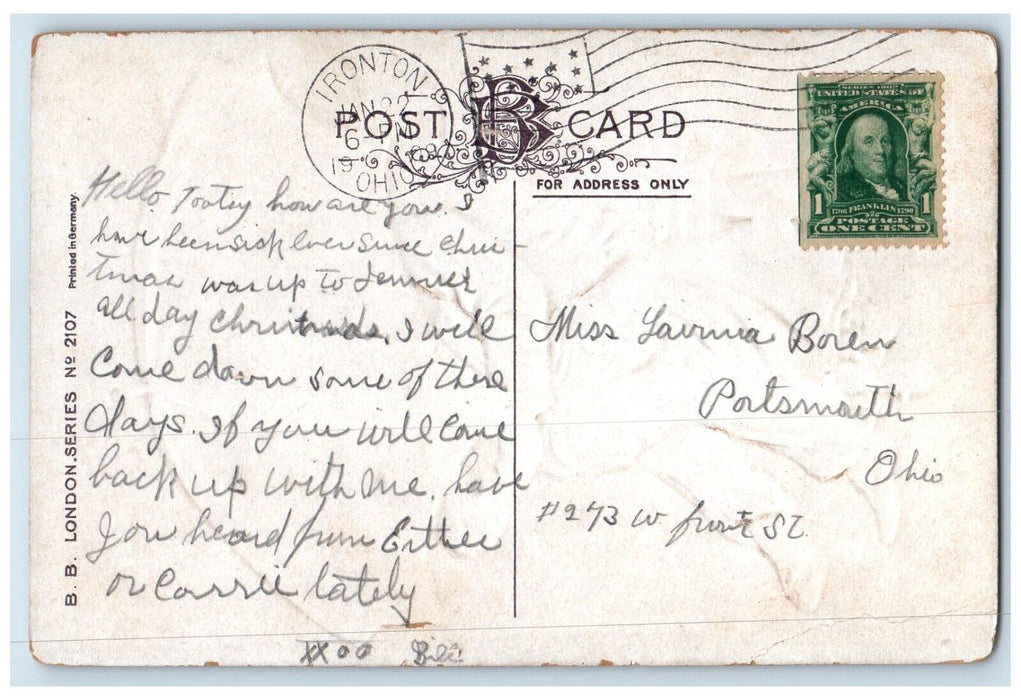 IRONTON
JAN 22
6 PM
OHIO
POST CARD
BB
FOR ADDRESS ONLY
SERIES 1902
UNITED STATES OF
AMERICA
1 1
1706 FRANKLIN 1790
POSTAGE
ONE CENT
B. B. LONDON. SERIES Nº 2107 Printed in Germany.
Hello Tootsy how are you. I
have been sick ever since Chris-
tmas was up to
all day Christmas. I will
Come down some of these
days. If you will come
back up with me. have
you heard from
or Carrie lately
XX00
Miss Lavinia Boren
Portsmouth
Ohio
#243 W front St.